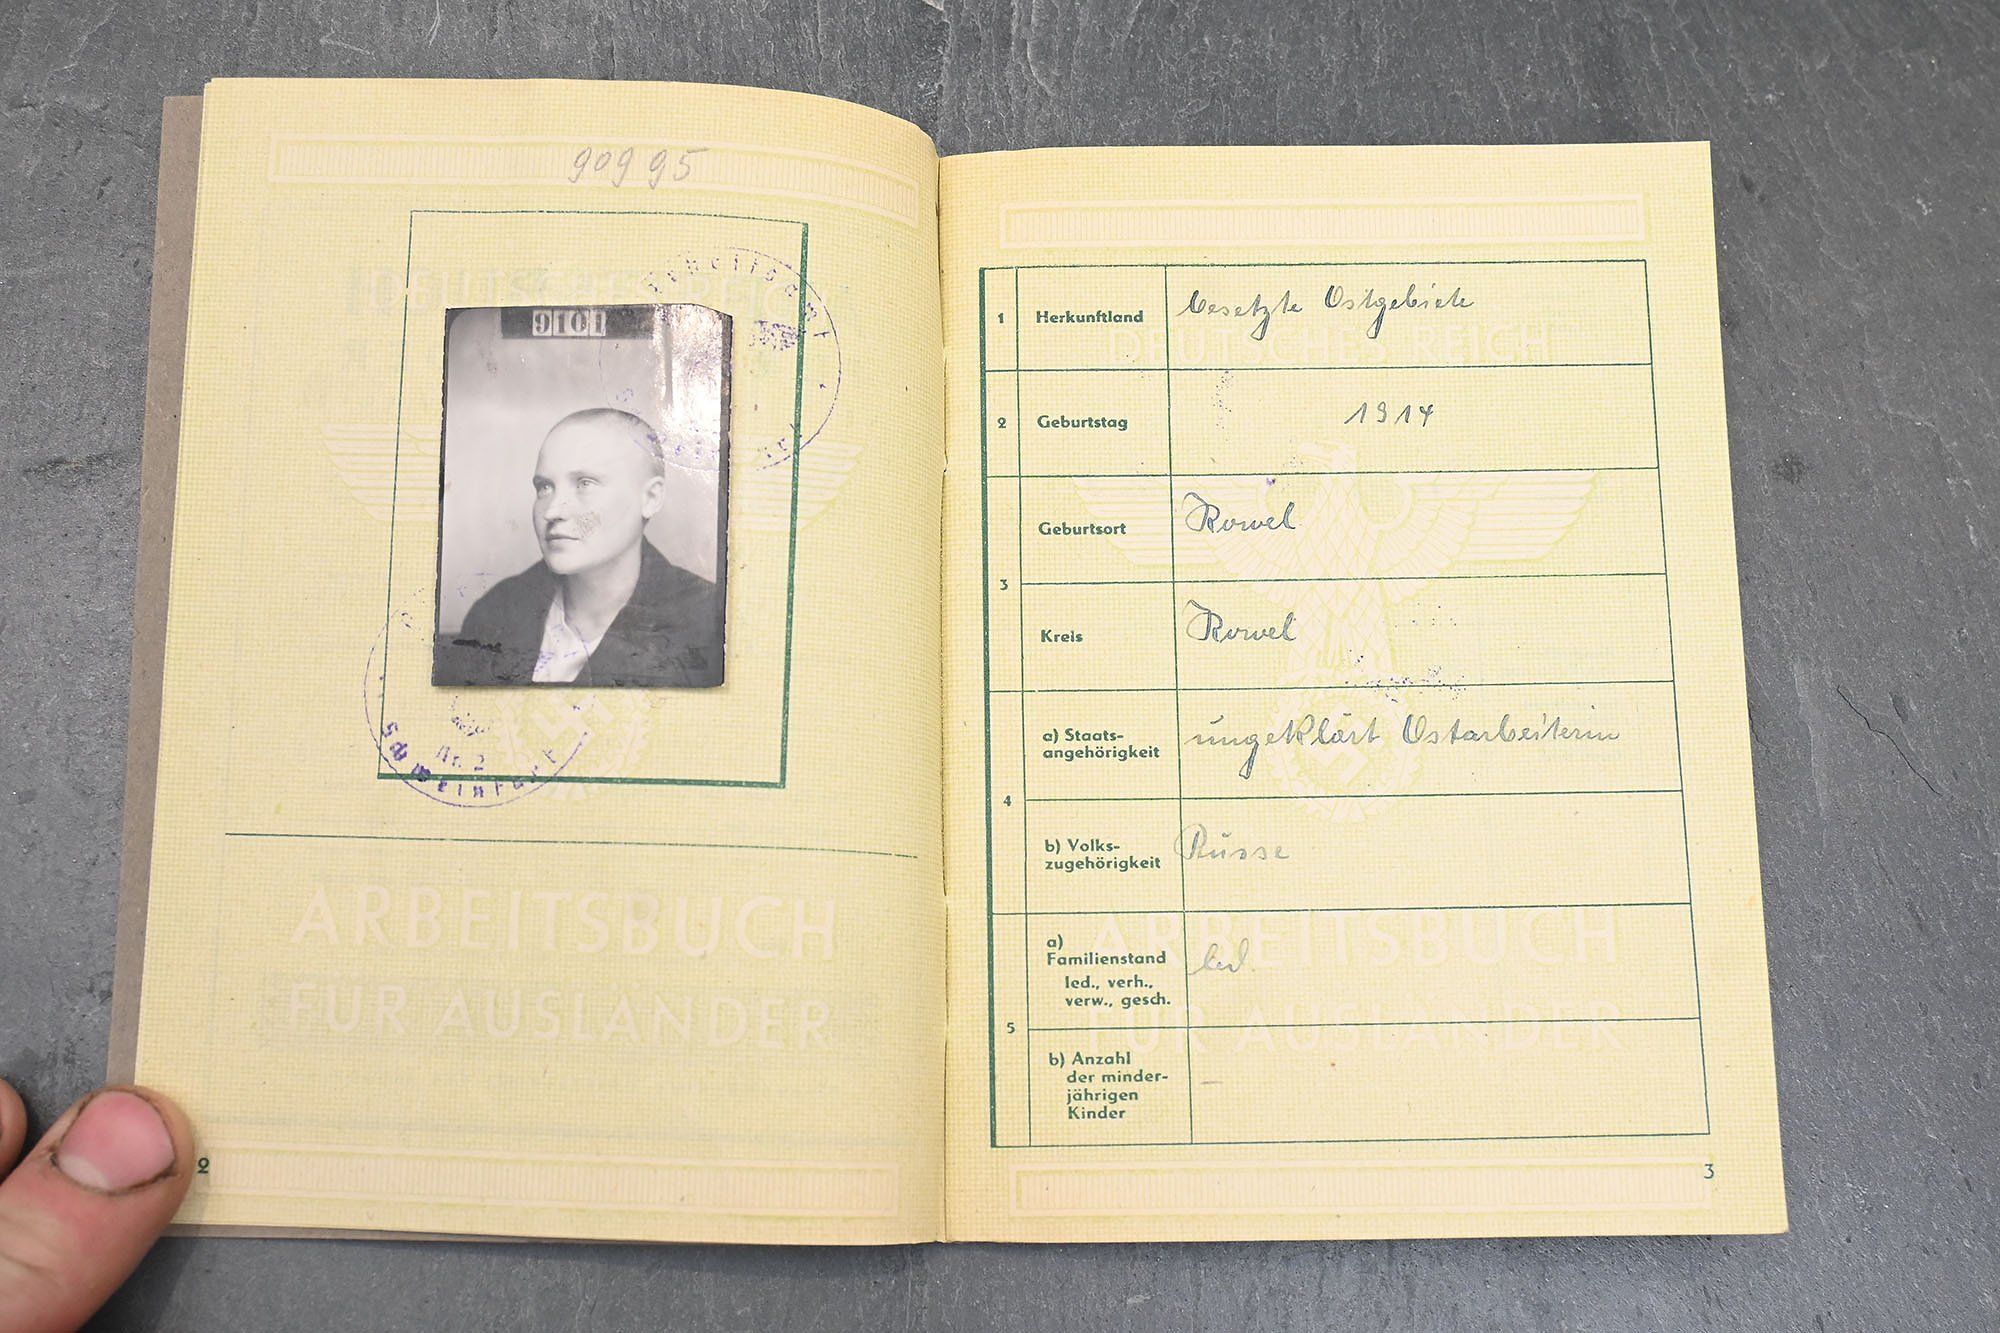 90995
9101
Arbeitsamt
Schweinfurt
Nr. 2
Schweinfurt
DEUTSCHES REICH
ARBEITSBUCH
FÜR AUSLÄNDER
2
DEUTSCHES REICH
1 Herkunftland besetzte Ostgebiete
2 Geburtstag 1914
3 Geburtsort Kowel
Kreis Kowel
4 a) Staats-
angehörigkeit ungeklärt Ostarbeiterin
b) Volks-
zugehörigkeit Russe
5 a)
Familienstand led.
led., verh.,
verw., gesch.
b) Anzahl
der minder- –
jährigen
Kinder
ARBEITSBUCH
FÜR AUSLÄNDER
3